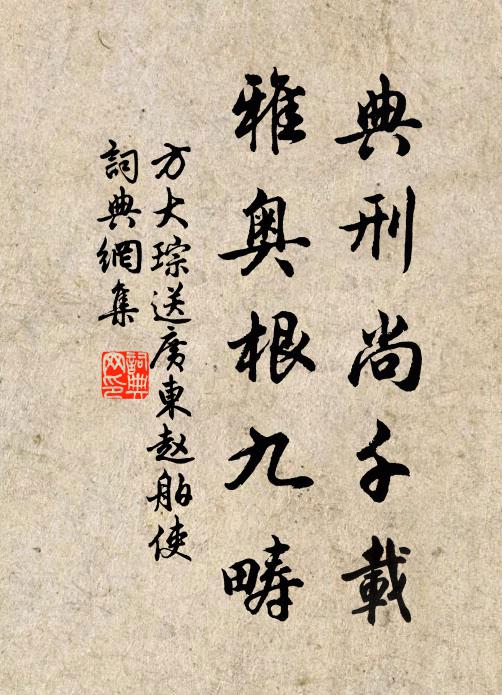 典刑尚千載
雅奥根九疇
方大琮送廣東赵舶使
詞典網集
詞典网印